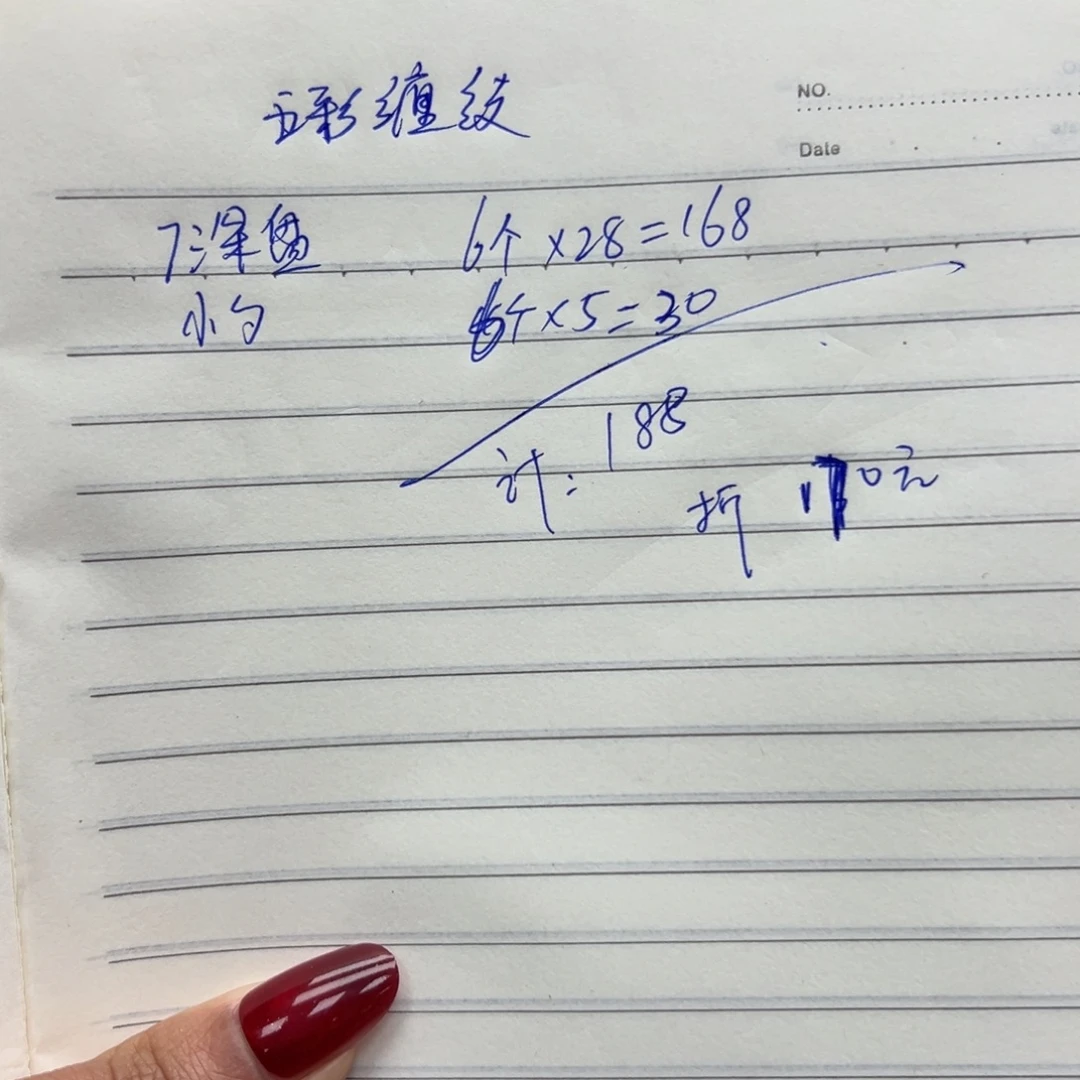 五彩缠纹
NO.
Date
7深盘 6个×28=168
小勺 6个×5=30
计:188
折 170元